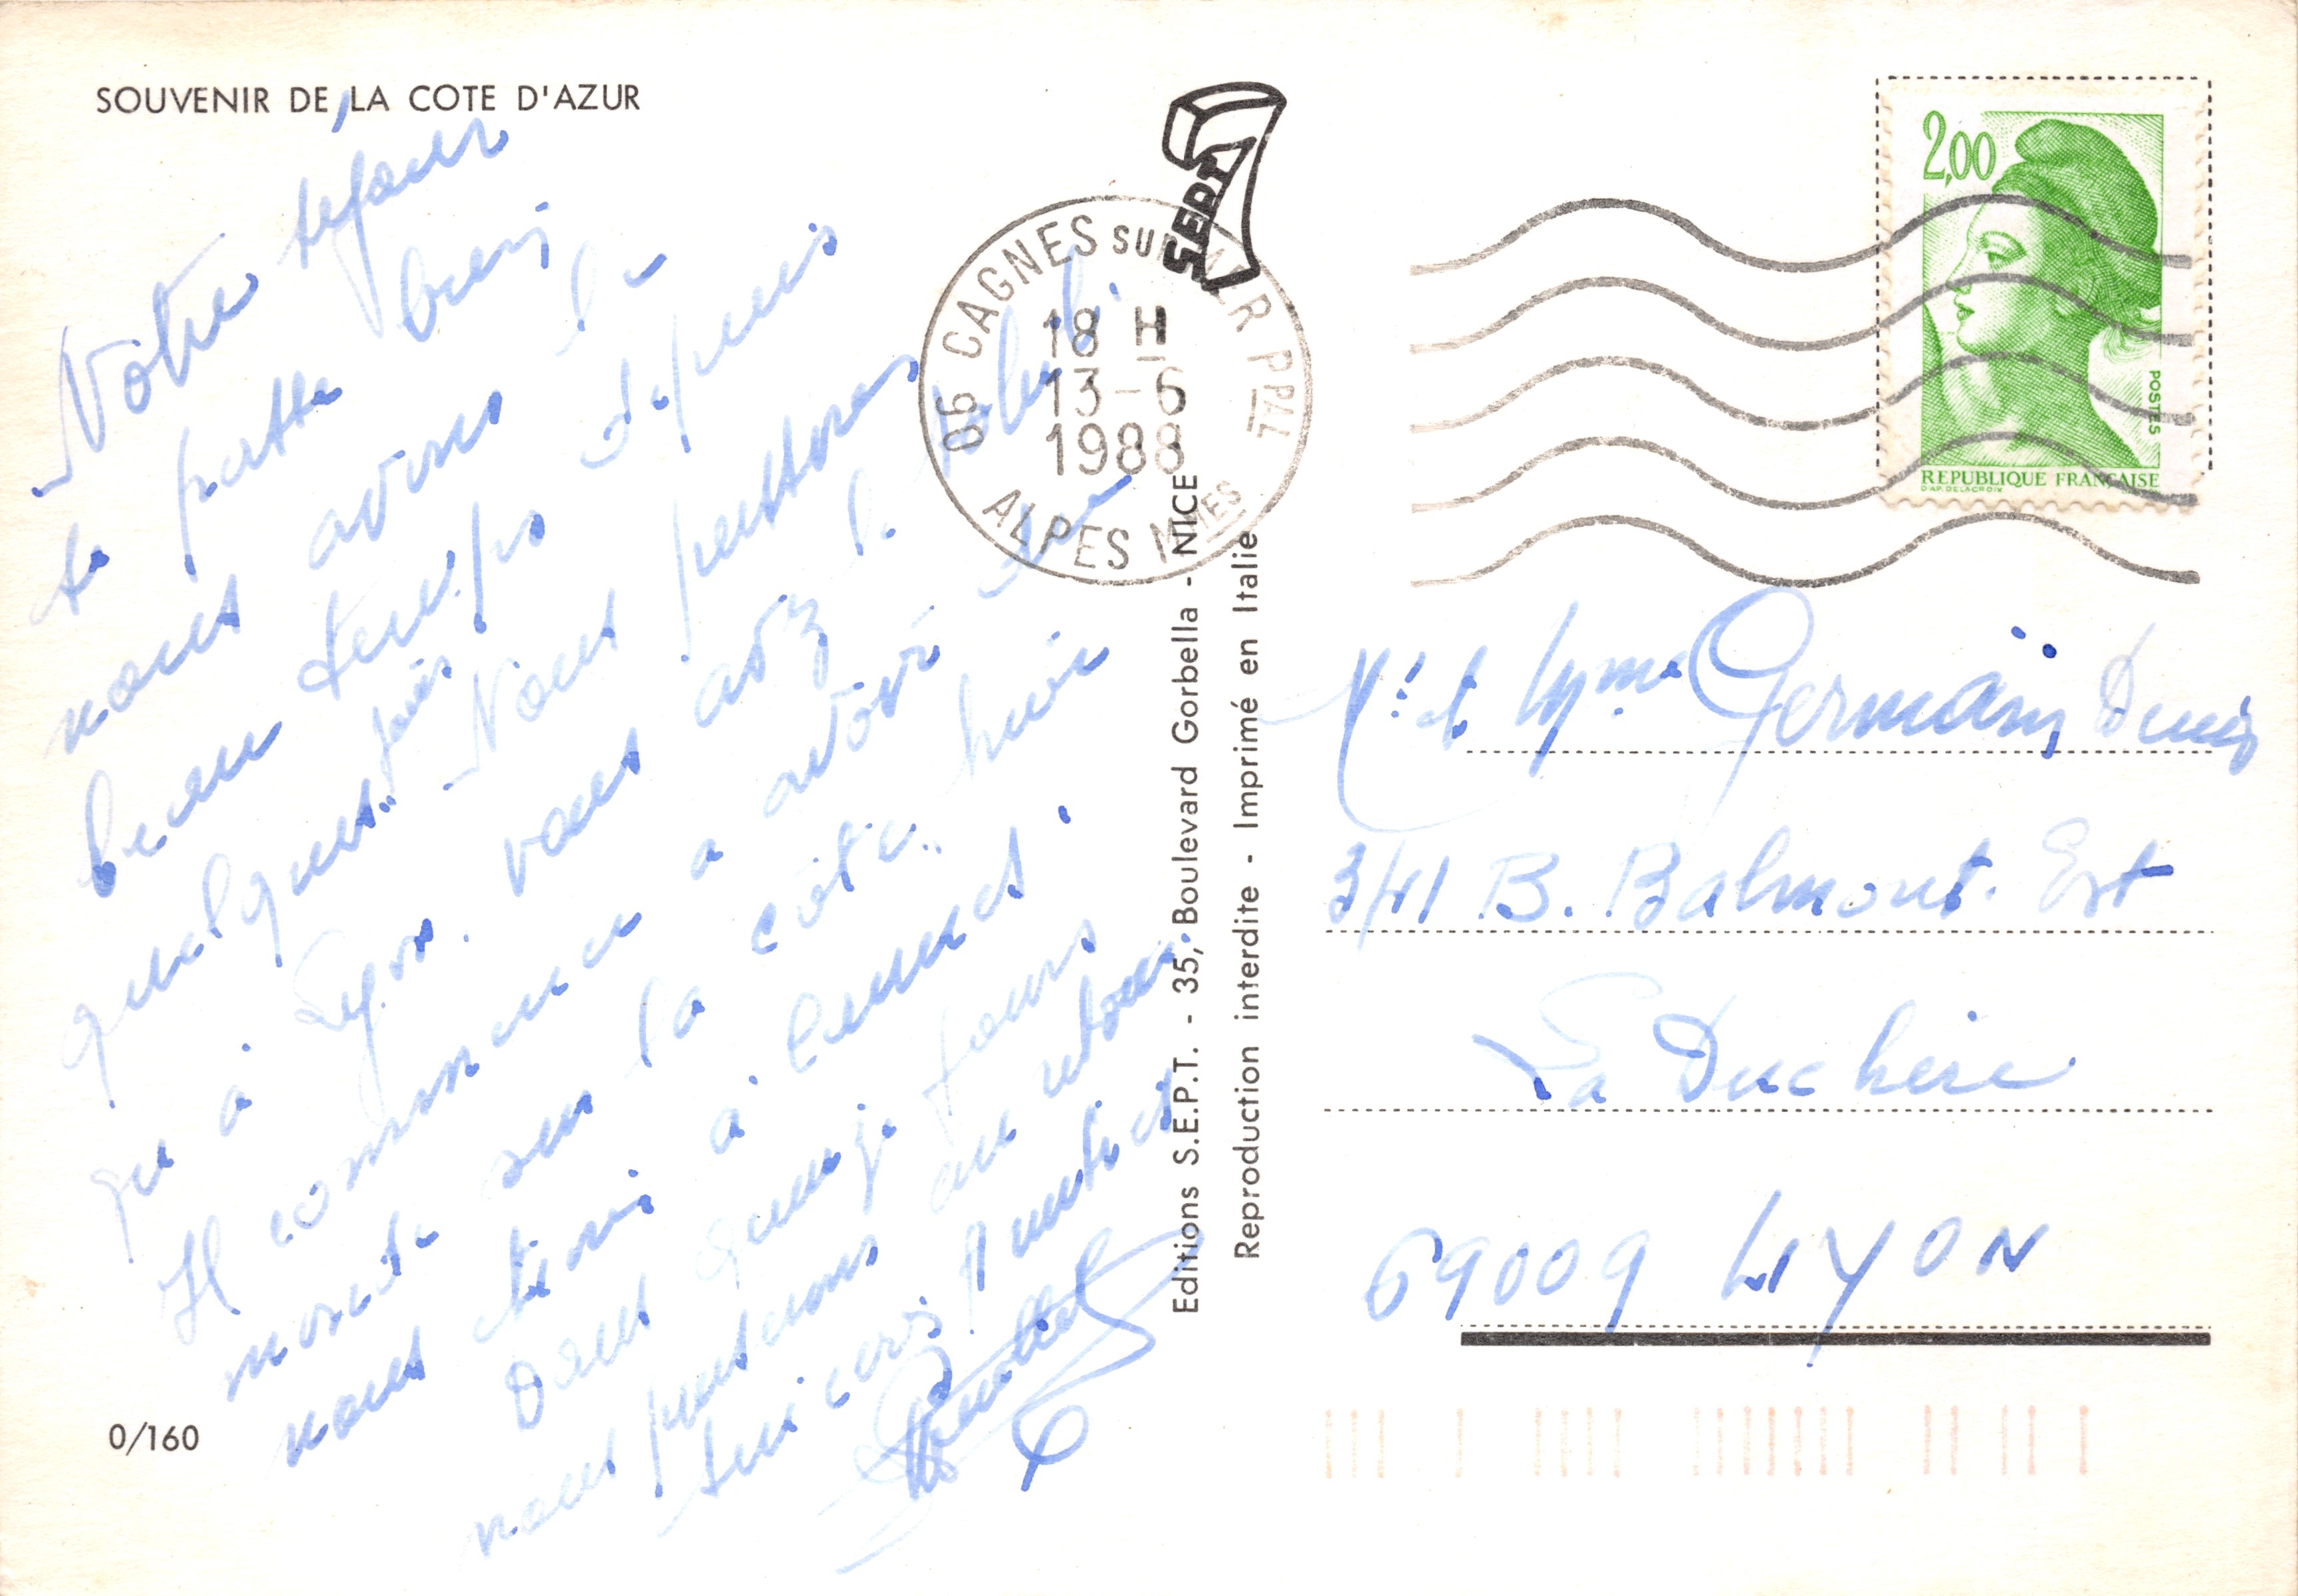 SOUVENIR DE LA COTE D'AZUR
Notre séjour
se passe bien
nous avons le
beau temps depuis
quelques jours. Nous pensons
qu'à Lyon vous avez le soleil.
Il commence à avoir du
monde sur la côte.
nous étions à hier
Dans quinze jours
nous penserons au retour
sincères amitiés
0/160
SEPT
06 CAGNES SUR MER PPAL
18 H
13-6
1988
ALPES MMES
Editions S.E.P.T. - 35, Boulevard Gorbella - NICE
Reproduction interdite - Imprimé en Italie
2,00
POSTES
REPUBLIQUE FRANÇAISE
D'AP. DELACROIX
Mr et Mme Germain Denis
341 B. Balmont. Est
La Duchère
69009 LYON